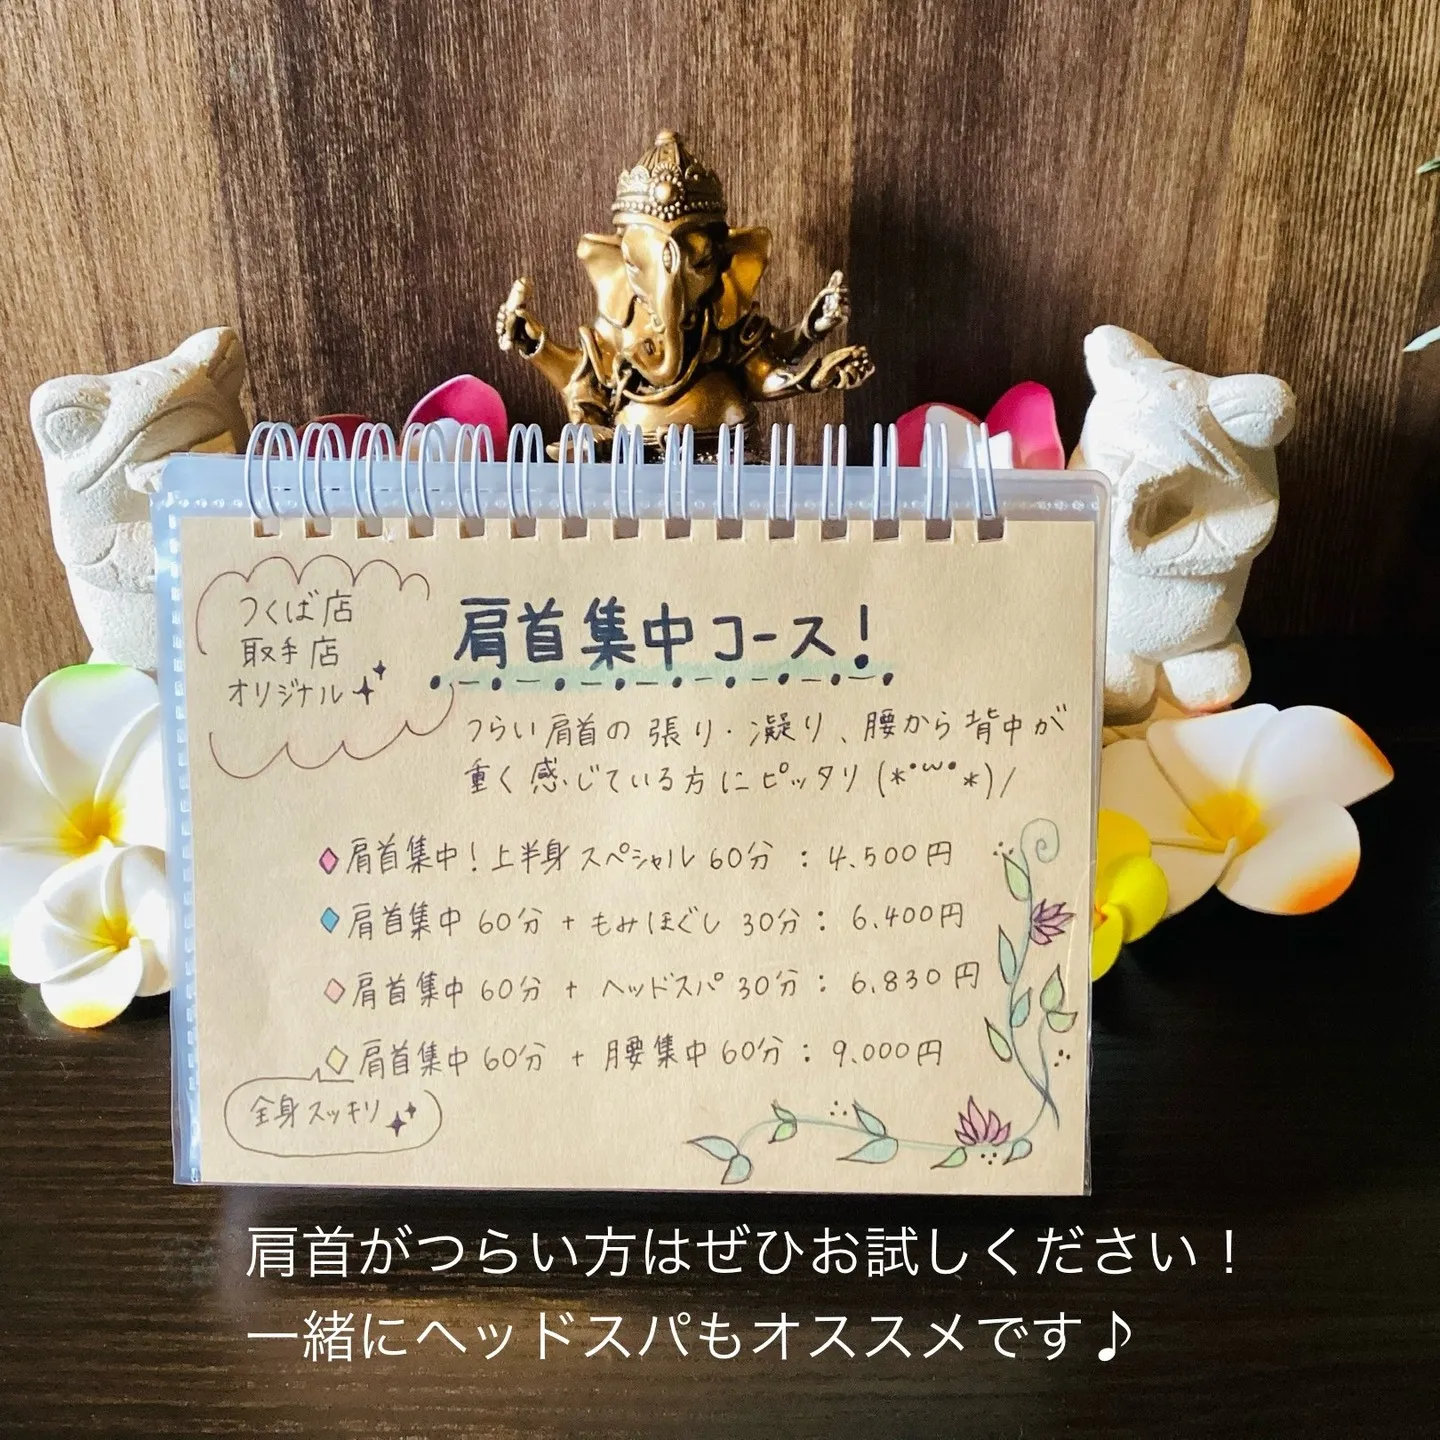 つくば店
取手店
オリジナル
肩首集中コース!
つらい肩首の張り・凝り、腰から背中が
重く感じている方にピッタリ(*•ω•*)/
◇肩首集中!上半身スペシャル60分:4.500円
◇肩首集中60分+もみほぐし30分:6.400円
◇肩首集中60分+ヘッドスパ30分:6.830円
◇肩首集中60分+腰集中60分:9.000円
全身スッキリ
肩首がつらい方はぜひお試しください！
一緒にヘッドスパもオススメです♪